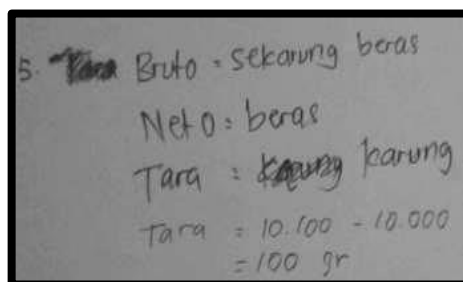 5. Bruto = sekarung beras
Neto = beras
Tara = karung
Tara = 10.100 - 10.000
= 100 gr